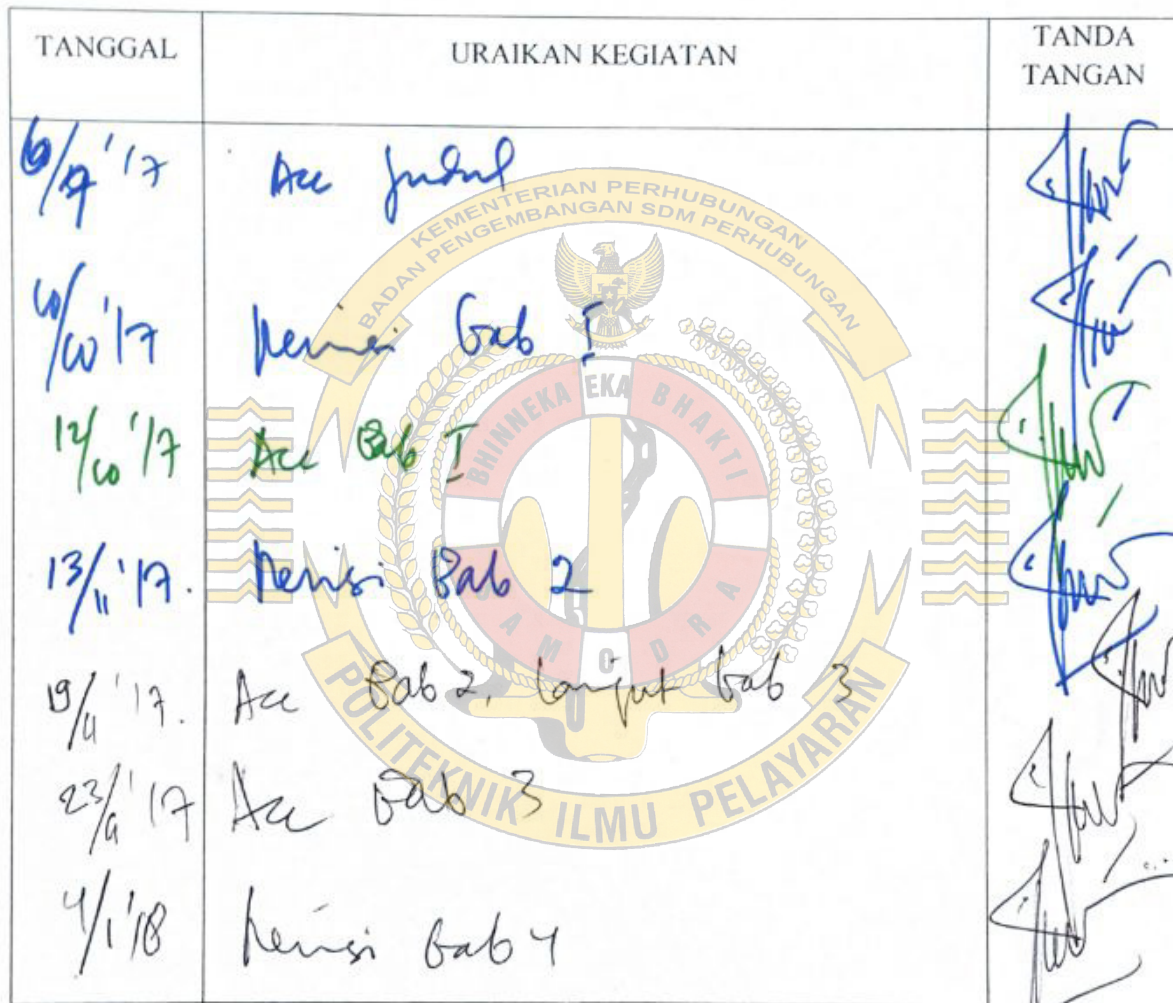 TANGGAL URAIKAN KEGIATAN TANDA TANGAN
'17 Acc Judul
10/10 '17 Revisi Bab I
12/10 '17 Acc Bab I
13/11 '17. Revisi Bab 2
19/11 '17. Acc Bab 2, lanjut bab 3
23/11 '17 Acc Bab 3
4/1 '18 Revisi Bab 4
KEMENTERIAN PERHUBUNGAN
BADAN PENGEMBANGAN SDM PERHUBUNGAN
BHINNEKA EKA BHAKTI
SAMODRA
POLITEKNIK ILMU PELAYARAN